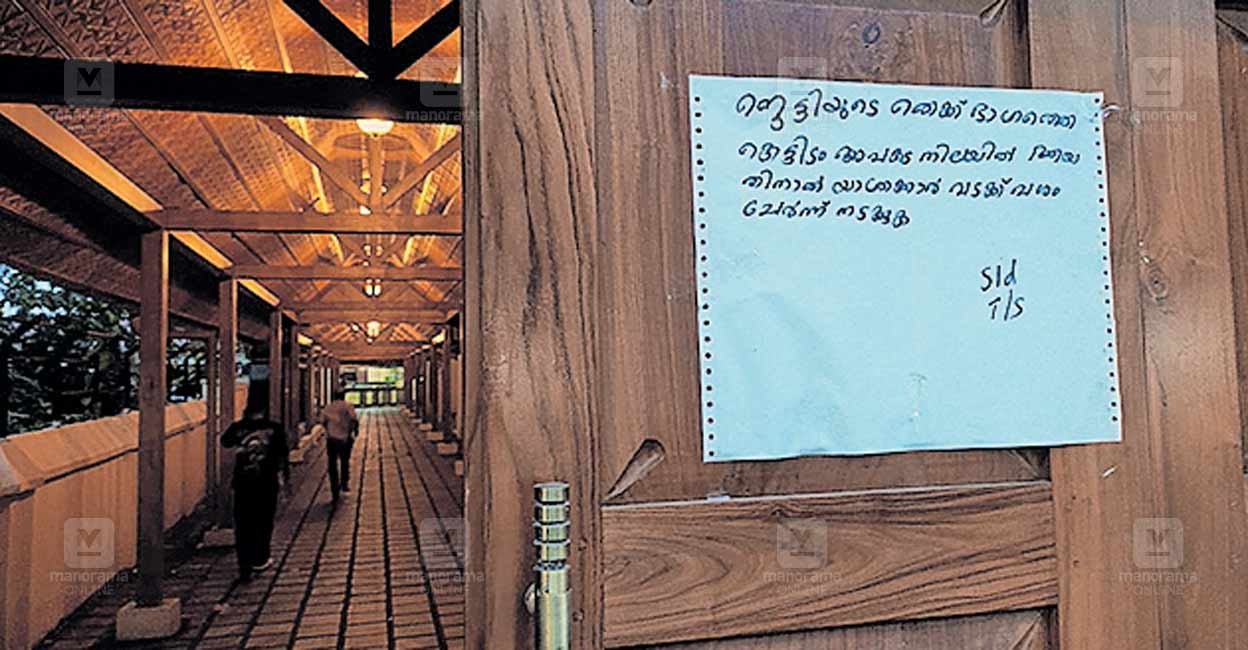 ജെട്ടിയുടെ തെക്ക് ഭാഗത്തെ
കെട്ടിടം അപകട നിലയിൽ ആയ
തിനാൽ യാത്രക്കാർ വടക്ക് വശം
ചേർന്ന് നടക്കുക
S/d
T/S
manorama
ONLINE
manorama
ONLINE
manorama
ONLINE
manorama
ONLINE
manorama
ONLINE
manorama
ONLINE
manorama
ONLINE
manorama
ONLINE